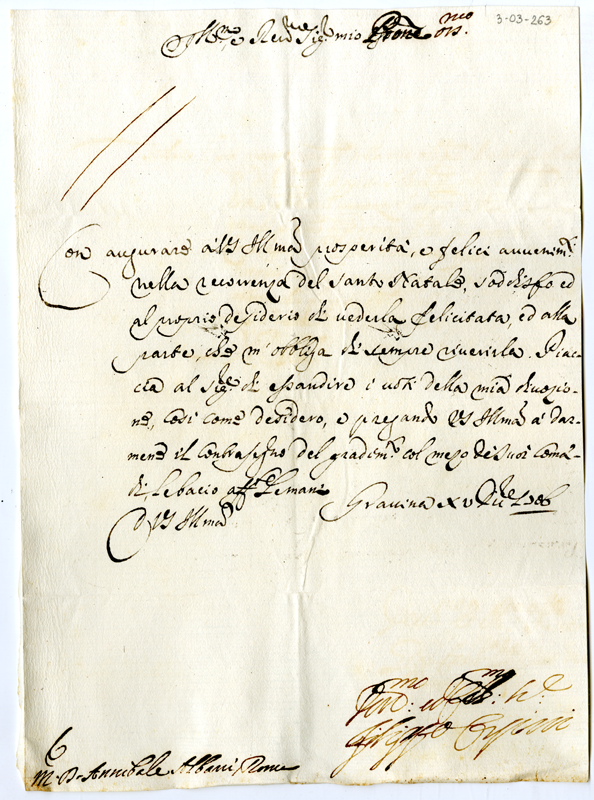 3-03-263
Ill.mo e Rev.mo Sig.r mio P.rone oss.mo
Con augurare à VS Ill.ma prosperità, e felici avvenim.ti
nella ricorrenza del santo Natale, sodisfo ed
al proprio desiderio di vederla felicitata, ed alla
parte, che m'obbliga di sempre riverirla. Piac-
cia al Sig.re di esaudire i voti della mia divozio-
ne, così come desidero, e pregando VS Ill.ma à dar-
mene il contrasegno del gradim.to col mezo de suoi coman-
di, le bacio aff.te le mani
Gravina xv Xbre 1706
D VS Ill.ma
Filippo Orsini
M. D. Annibale Albani, Roma